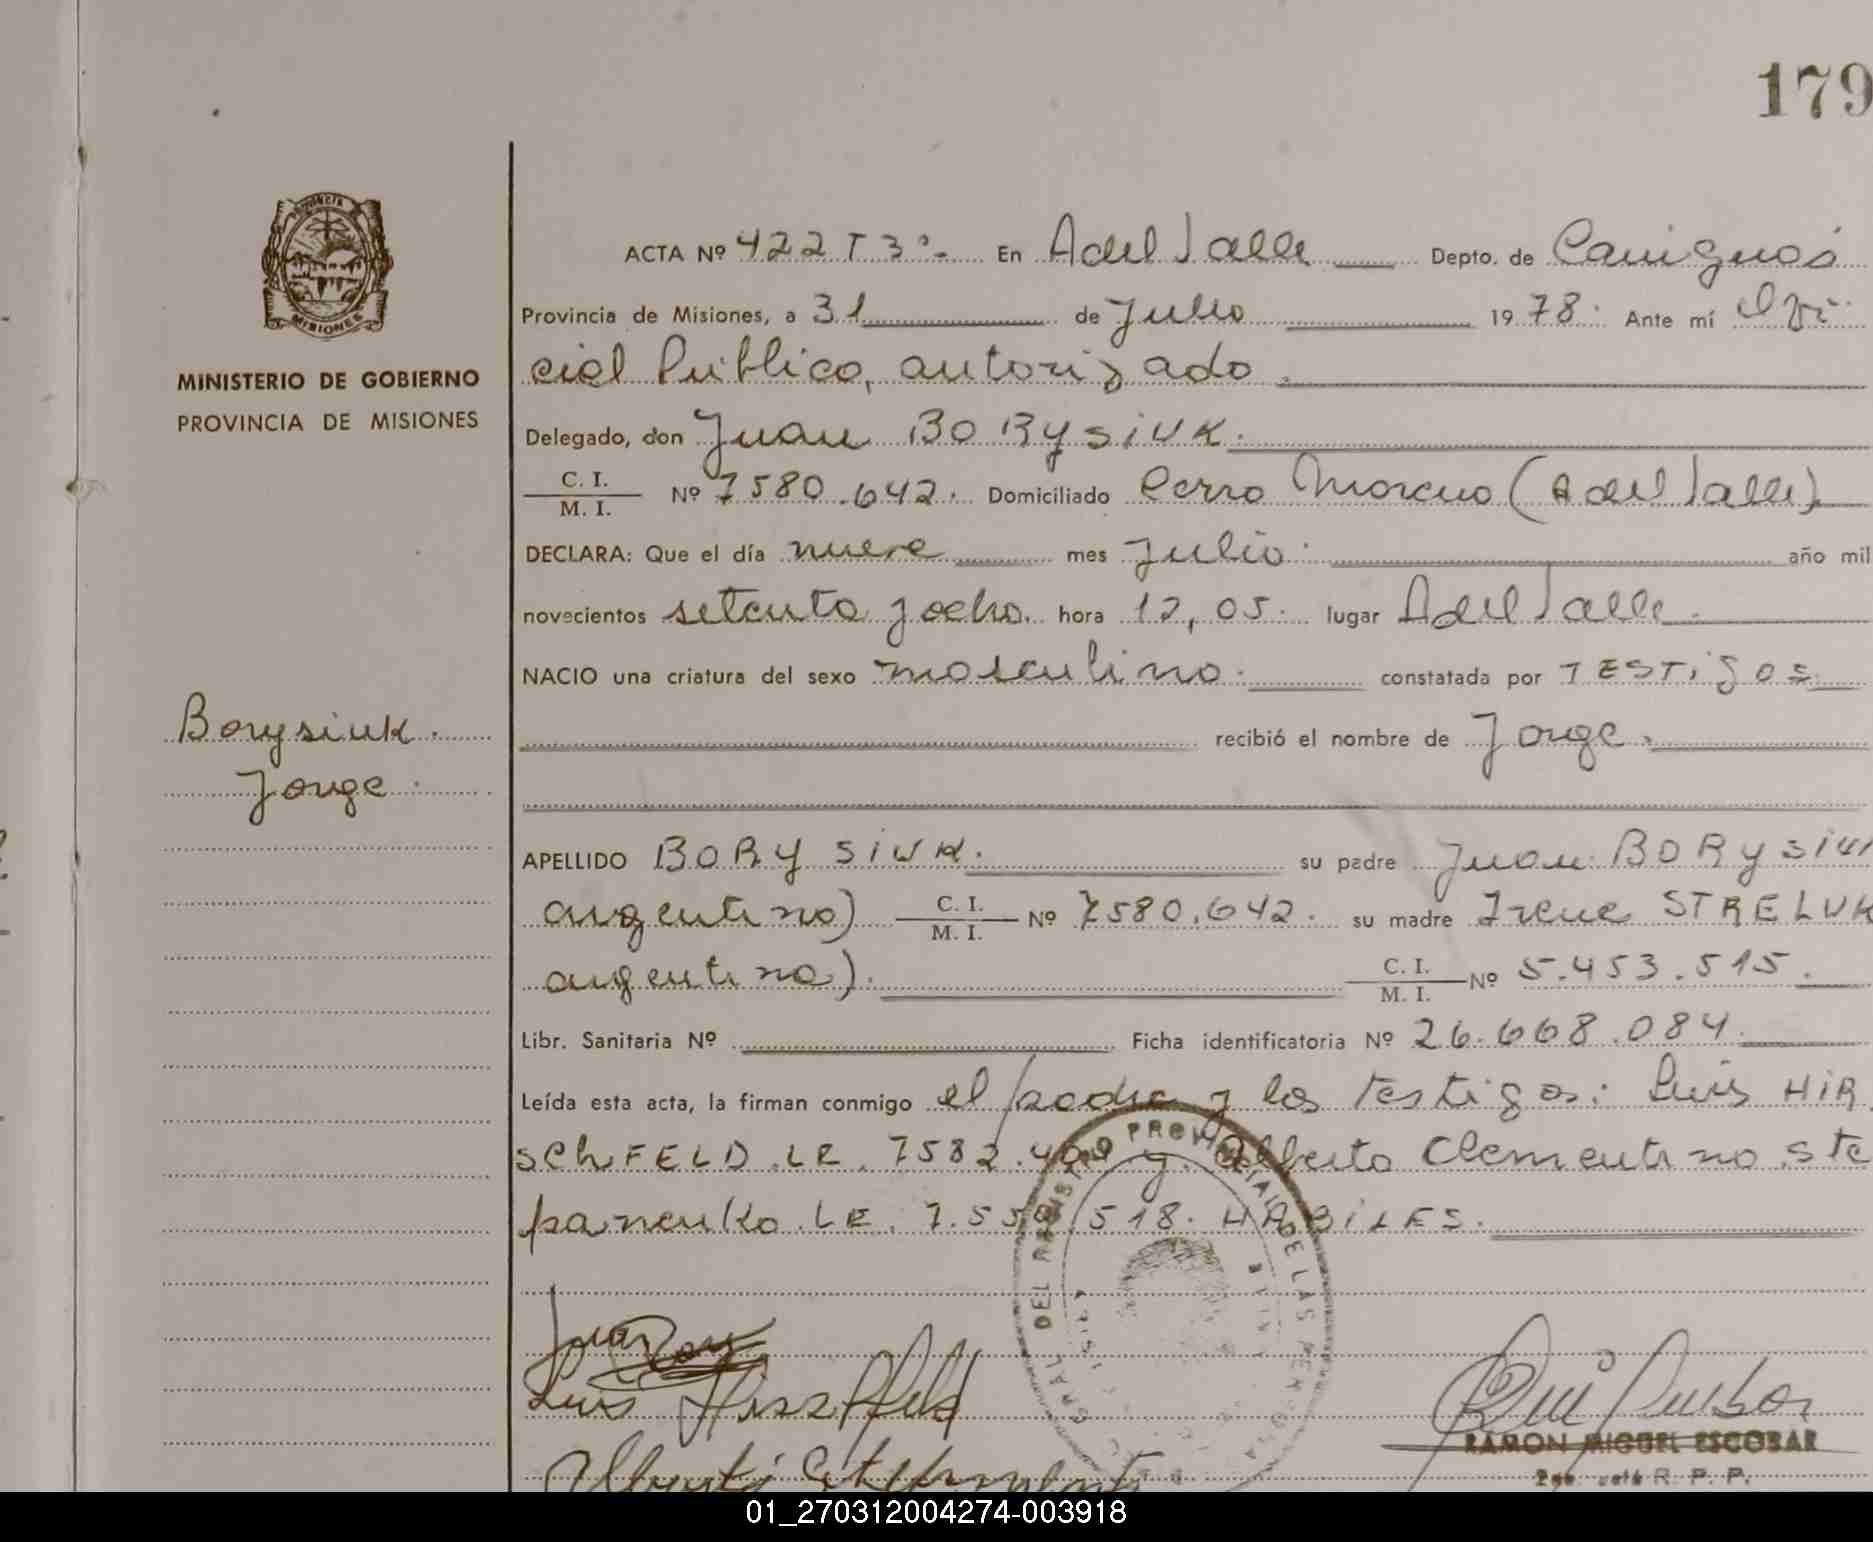 179
PROVINCIA DE
MISIONES
MINISTERIO DE GOBIERNO
PROVINCIA DE MISIONES
Borysiuk.
Jorge.
ACTA Nº 422 T 3º- En A del Valle Depto. de Cainguás
Provincia de Misiones, a 31 de Julio 19 78. Ante mí Ofi
cial Público, autorizado.
Delegado, don Juan BORYSIUK.
C. I. / M. I. Nº 7580.642. Domiciliado Cerro Moreno (A del Valle)
DECLARA: Que el día nueve mes Julio. año mil
novecientos setenta y ocho. hora 12,05. lugar A del Valle.
NACIO una criatura del sexo masculino. constatada por TESTIGOS
recibió el nombre de Jorge.
APELLIDO BORYSIUK. su padre Juan BORYSIUK
argentino) C. I. / M. I. Nº 7580.642. su madre Irene STRELUK
argentina). C. I. / M. I. Nº 5.453.515.
Libr. Sanitaria Nº Ficha identificatoria Nº 26.668.084.
Leída esta acta, la firman conmigo el padre y los testigos: Luis HIR
schFELD LE. 7582.409 y Alberto Clementino Ste
panenko LE. 7.558.518. HABILES.
GRAL DEL REGISTRO PROVINCIAL DE LAS PERSONAS
Luis Hirschfeld
RAMON MIGUEL ESCOBAR
R. P. P.
01_270312004274-003918